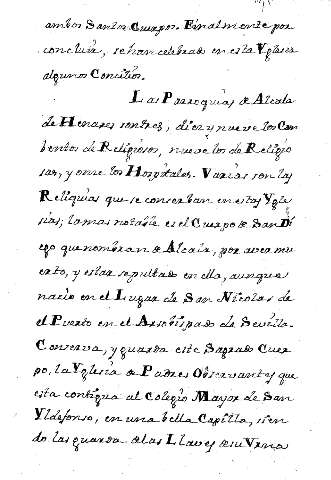 ambos Santos Cuerpos. Finalmente por
concluir, se han celebrado en esta Yglesia
algunos Concilios.
Las Parroquias de Alcala
de Henares son tres, diez y nueve los Con
bentos de Religiosos, nueve los de Religio
sas, y onze los Hospitales. Varias son las
Reliquias que se conserban en estas Ygle
sias; la mas notable es el Cuerpo de San Di
ego que nombran de Alcala, por aver mu
erto, y estar sepultado en ella, aunque
nacio en el Lugar de San Nicolas de
el Puerto en el Arzobispado de Sevilla.
Conserva, y guarda este Sagrado Cuer
po, la Yglesia de Padres Observantes que
esta contigua al Colegio Mayor de San
Yldefonso, en una bella Capilla, sien
do las guarda de las Llaves de su Vrna